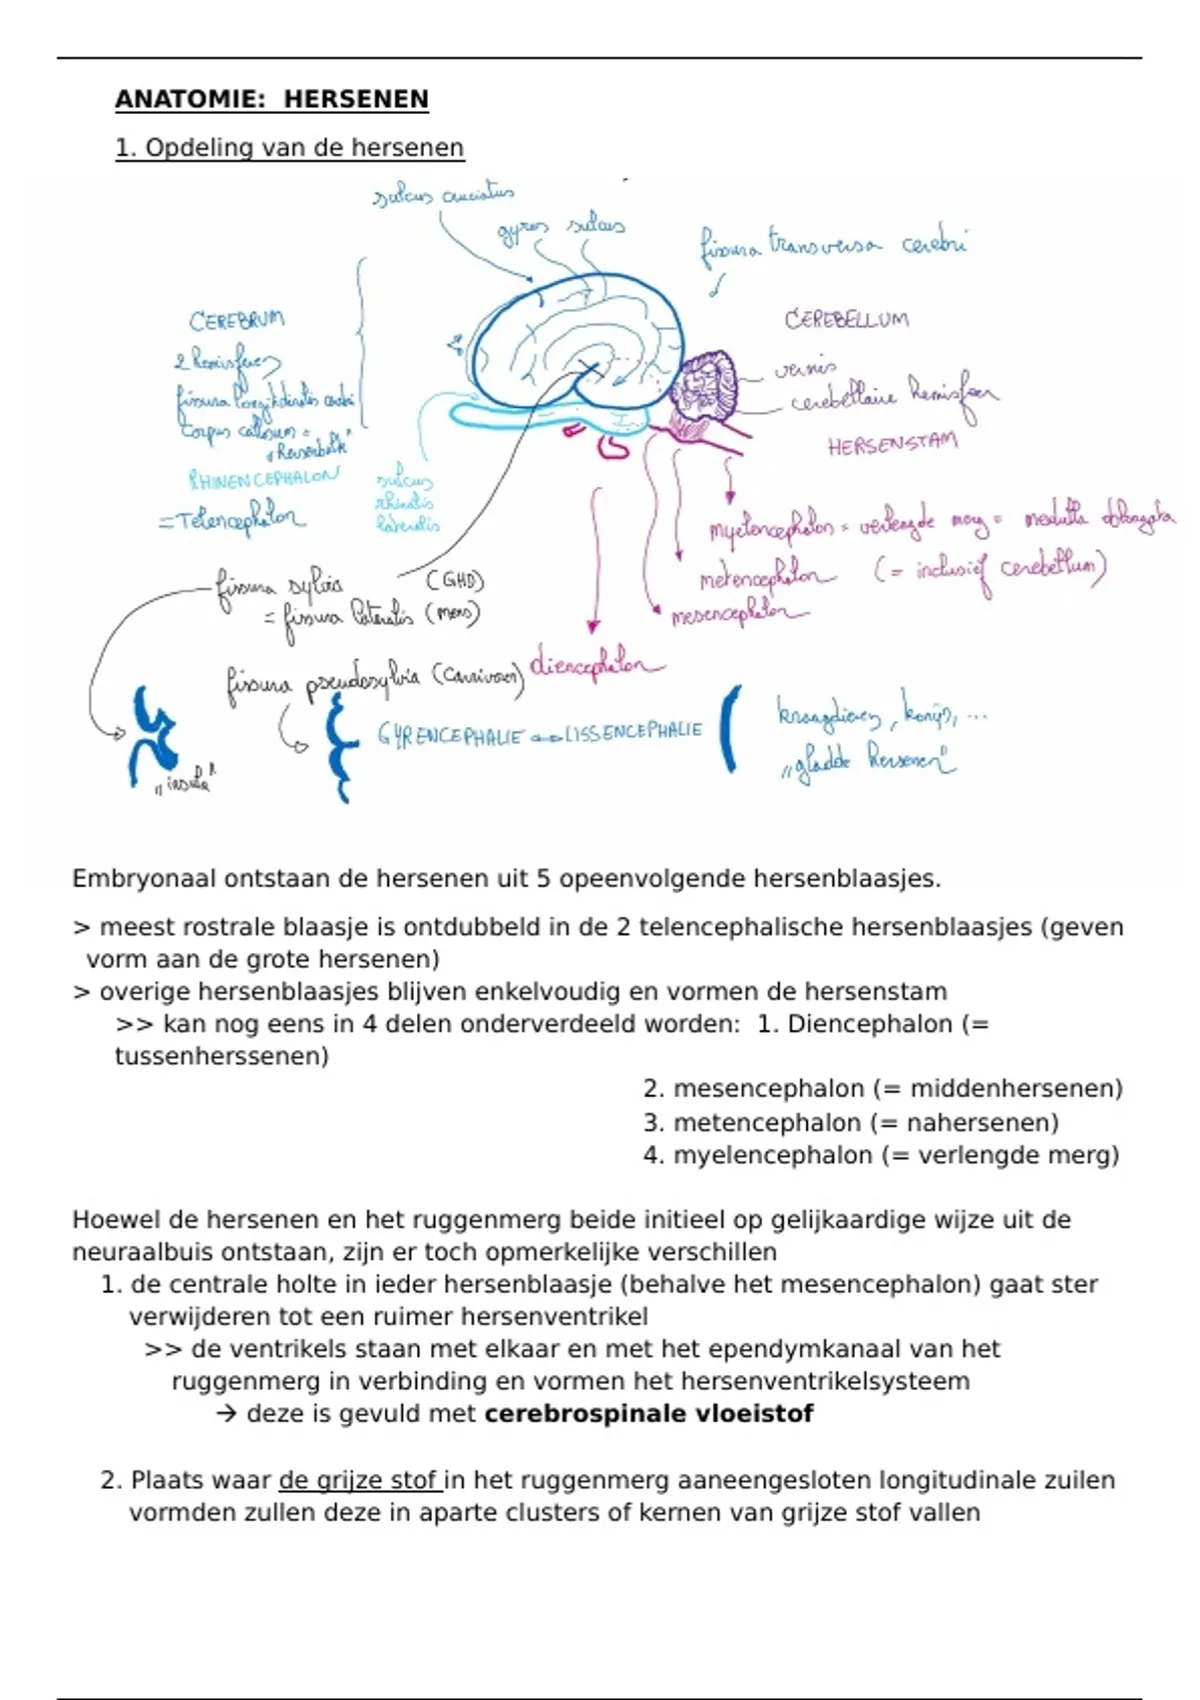 ANATOMIE: HERSENEN
1. Opdeling van de hersenen
sulcus cruciatus
gyrus sulcus
fissura transversa cerebri
CEREBRUM
2 hemisferen
fissura longitudinalis cerebri
corpus callosum =
"hersenbalk"
RHINENCEPHALON
= Telencephalon
sulcus
rhinalis
lateralis
CEREBELLUM
vermis
cerebellaire hemisfeer
HERSENSTAM
myelencephalon = verlengde merg = medulla oblongata
metencephalon (= inclusief cerebellum)
mesencephalon
diencephalon
fissura sylvia (GHD)
= fissura lateralis (mens)
fissura pseudosylvia (Carnivoren)
"insula"
GYRENCEPHALIE ↔ LISSENCEPHALIE
knaagdieren, konijn, ...
"gladde hersenen"
Embryonaal ontstaan de hersenen uit 5 opeenvolgende hersenblaasjes.
> meest rostrale blaasje is ontdubbeld in de 2 telencephalische hersenblaasjes (geven
vorm aan de grote hersenen)
> overige hersenblaasjes blijven enkelvoudig en vormen de hersenstam
>> kan nog eens in 4 delen onderverdeeld worden: 1. Diencephalon (=
tussenherssenen)
2. mesencephalon (= middenhersenen)
3. metencephalon (= nahersenen)
4. myelencephalon (= verlengde merg)
Hoewel de hersenen en het ruggenmerg beide initieel op gelijkaardige wijze uit de
neuraalbuis ontstaan, zijn er toch opmerkelijke verschillen
1. de centrale holte in ieder hersenblaasje (behalve het mesencephalon) gaat ster
verwijderen tot een ruimer hersenventrikel
>> de ventrikels staan met elkaar en met het ependymkanaal van het
ruggenmerg in verbinding en vormen het hersenventrikelsysteem
→ deze is gevuld met cerebrospinale vloeistof
2. Plaats waar de grijze stof in het ruggenmerg aaneengesloten longitudinale zuilen
vormden zullen deze in aparte clusters of kernen van grijze stof vallen